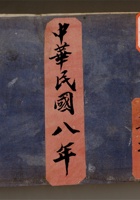 中華民國八年